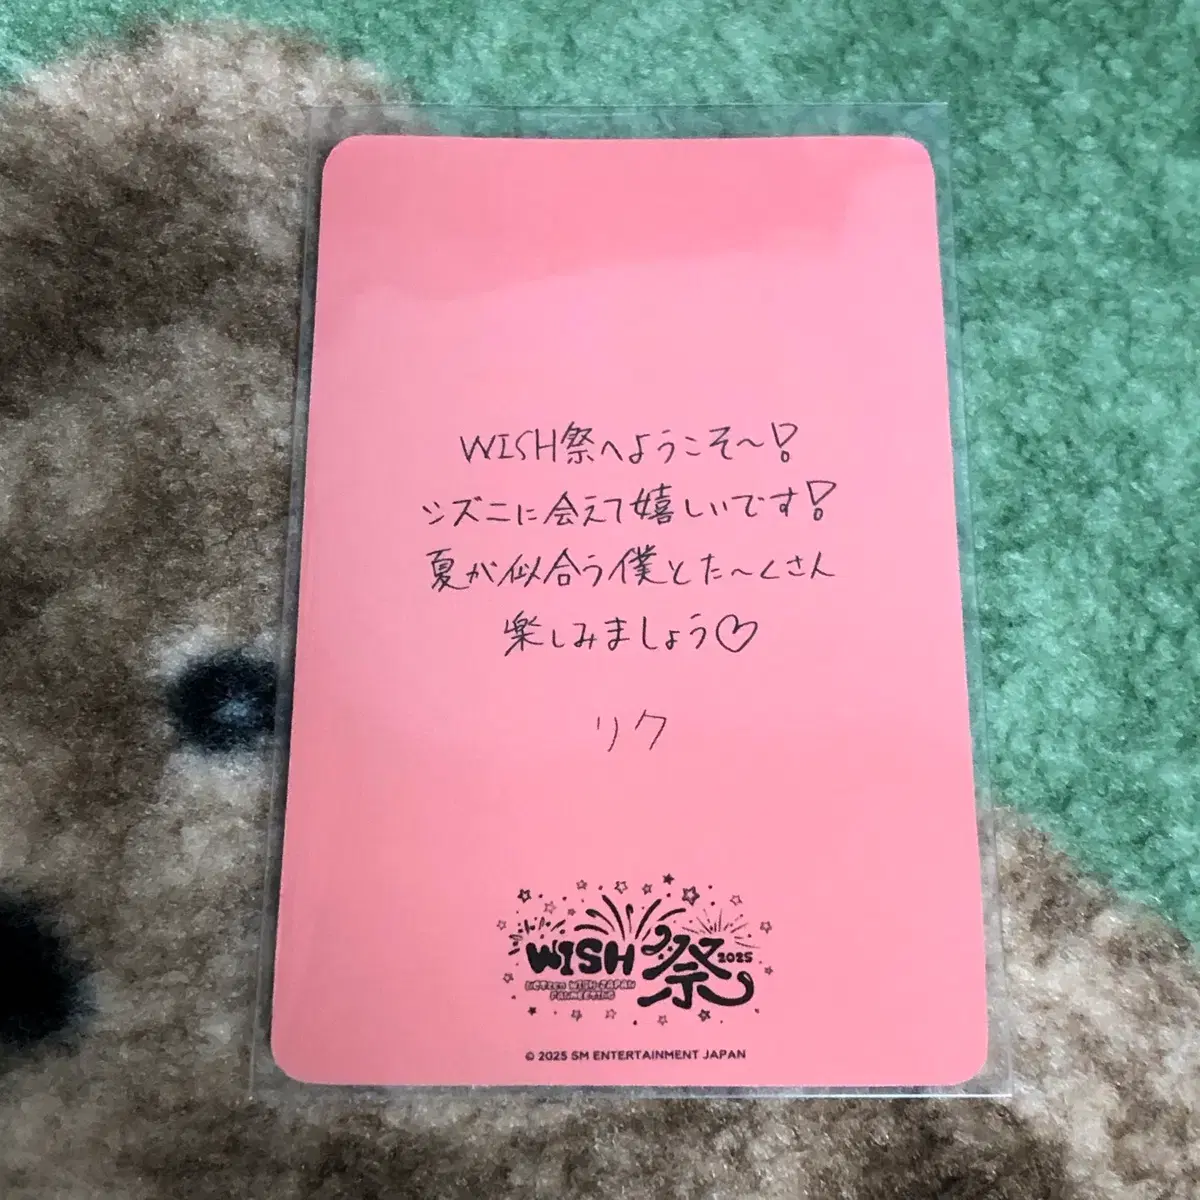 WISH祭へようこそ〜!
シズニに会えて嬉しいです!
夏が似合う僕とた〜くさん
楽しみましょう♡
リク
WISH祭 2025
NCTzen WISH-JAPAN
FANMEETING
© 2025 SM ENTERTAINMENT JAPAN